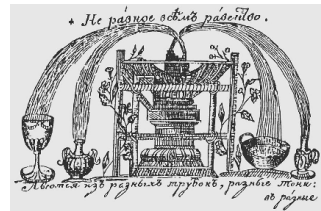 Не ра́вное всѣ́мъ ра́венство.
Лью́тся изъ разныхъ трубокъ, разные токи:
въ разные